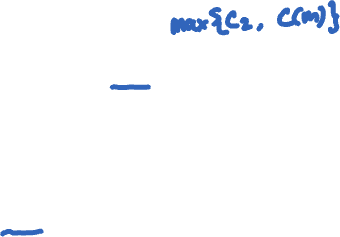 max{C₂, C(m)}